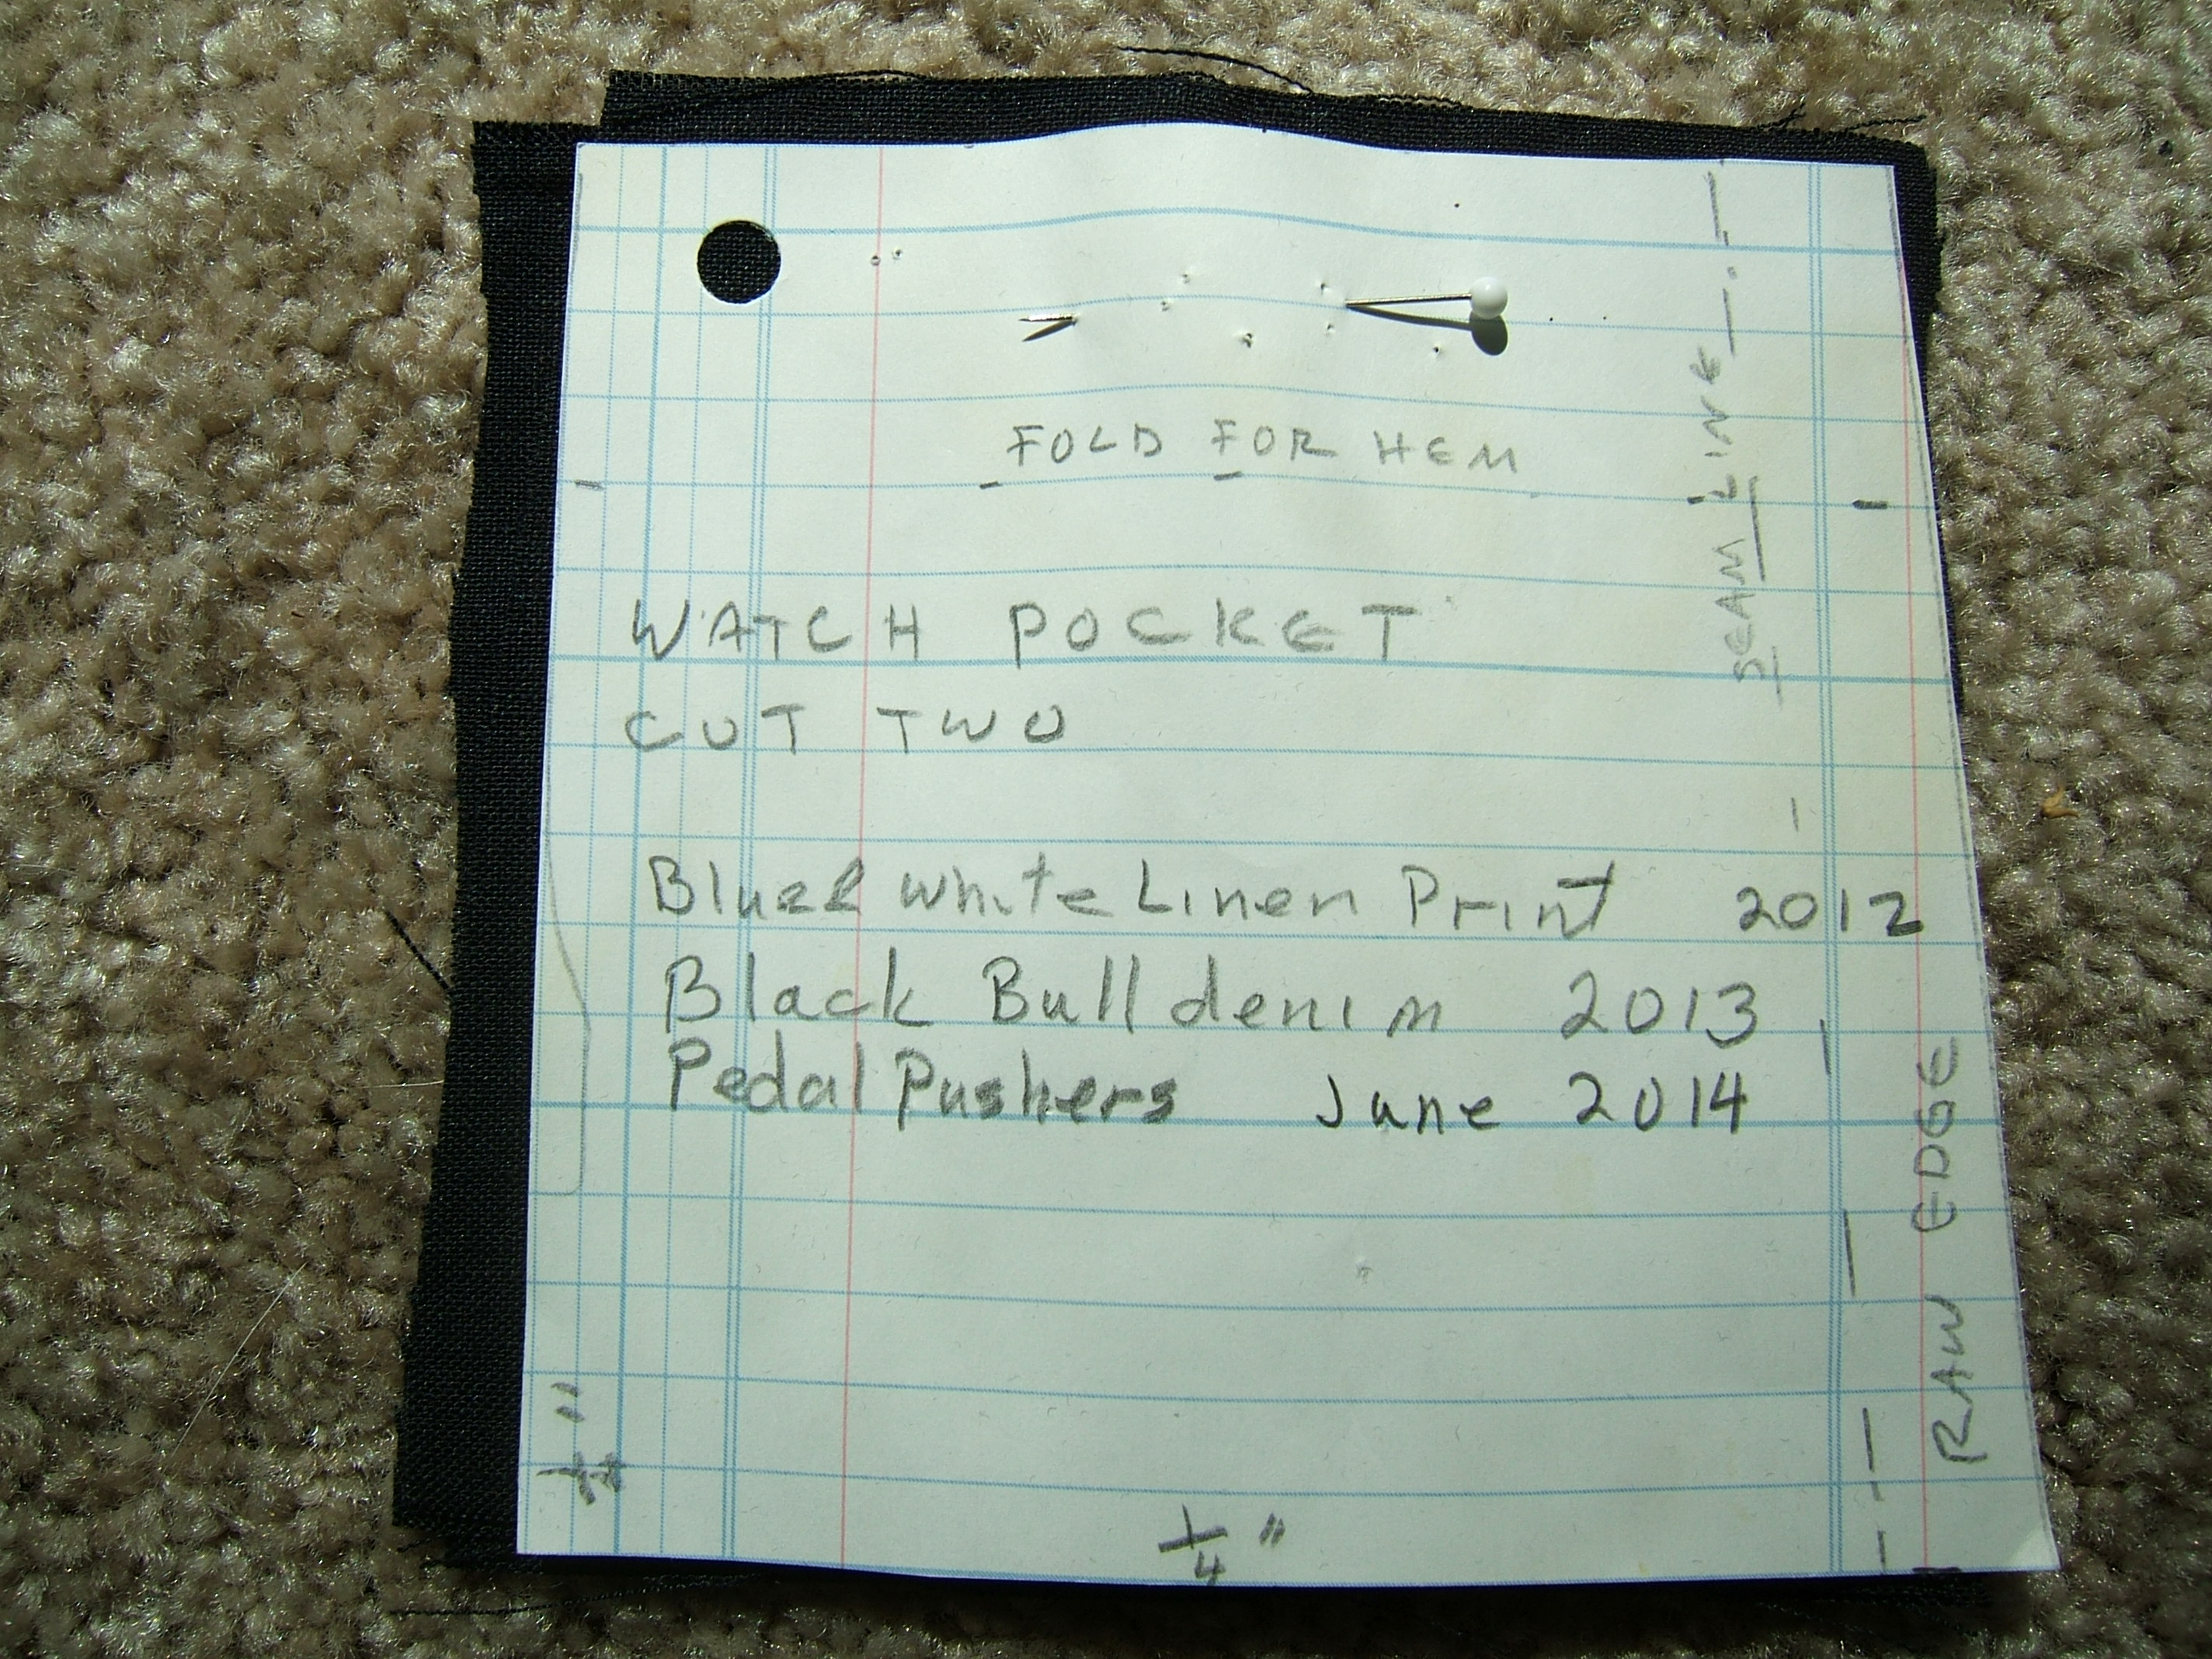 FOLD FOR HEM
SEAM LINE
WATCH POCKET
CUT TWO
Blue & White Linen Print 2012
Black Bull denim 2013
Pedal Pushers June 2014
RAW EDGE
1/4"